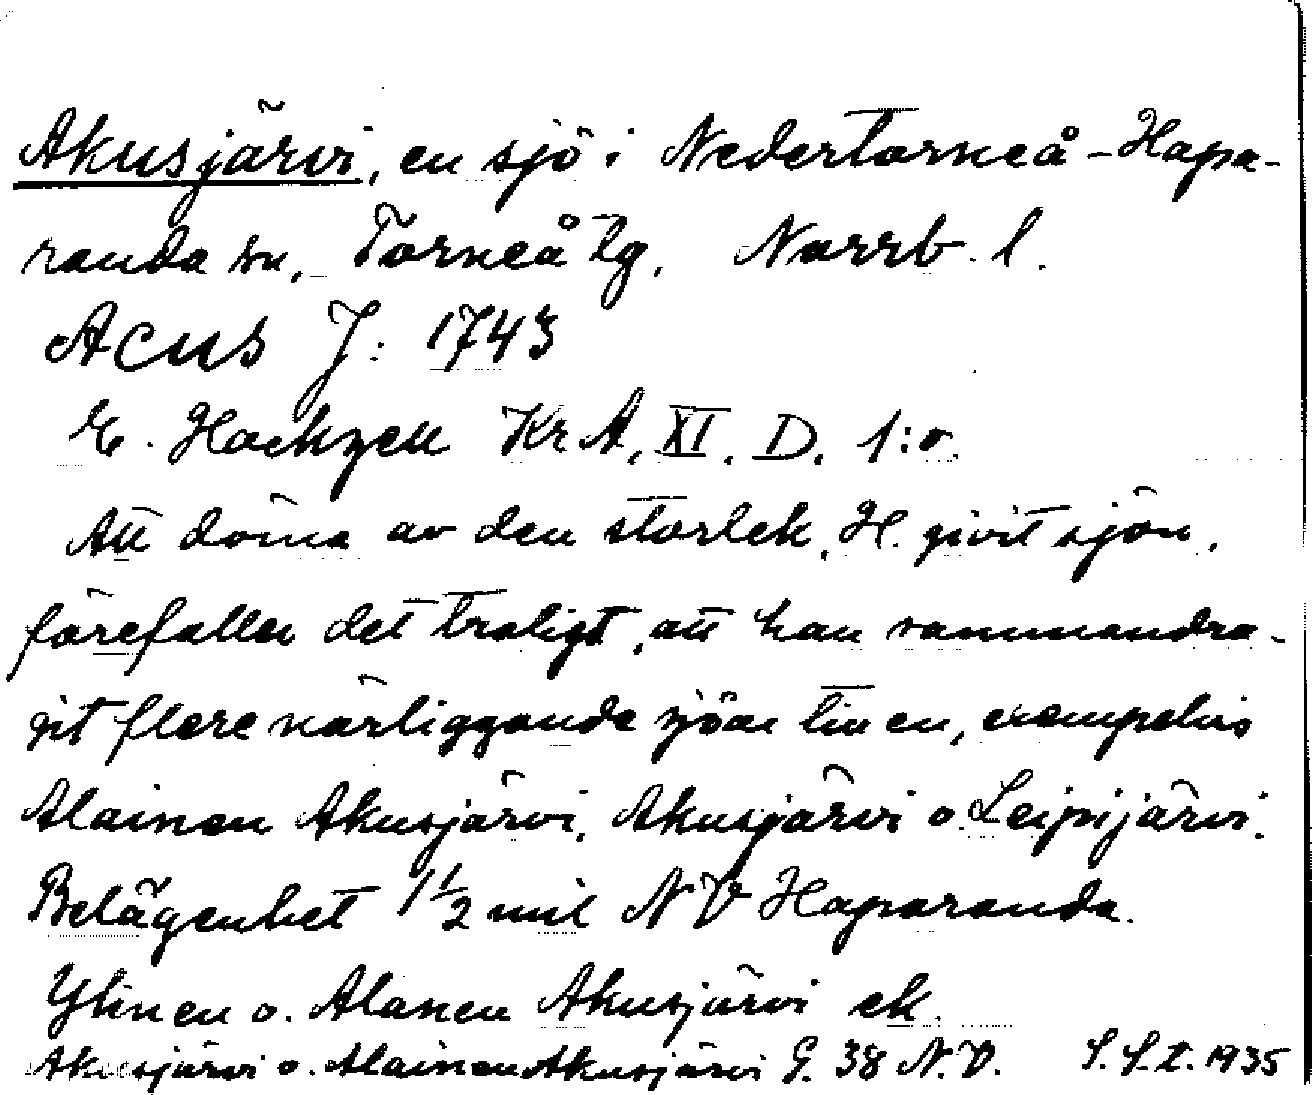 Akusjärvi, en sjö i Nedertorneå-Hapa-
randa sn, Torneå tg, Norrb. l.
Acus J: 1743
E. Hackzell KrA, XI. D. 1:o.
Att döma av den storlek, H. givit sjön,
förefaller det troligt, att han sammandra-
git flere närliggande sjöar till en, exempelvis
Alainen Akusjärvi, Akusjärvi o. Leipijärvi.
Belägenhet 1½ mil NV Haparanda.
Ylinen o. Alanen Akusjärvi ek.
Akusjärvi o. Alainen Akusjärvi G. 38 N.V. 1935